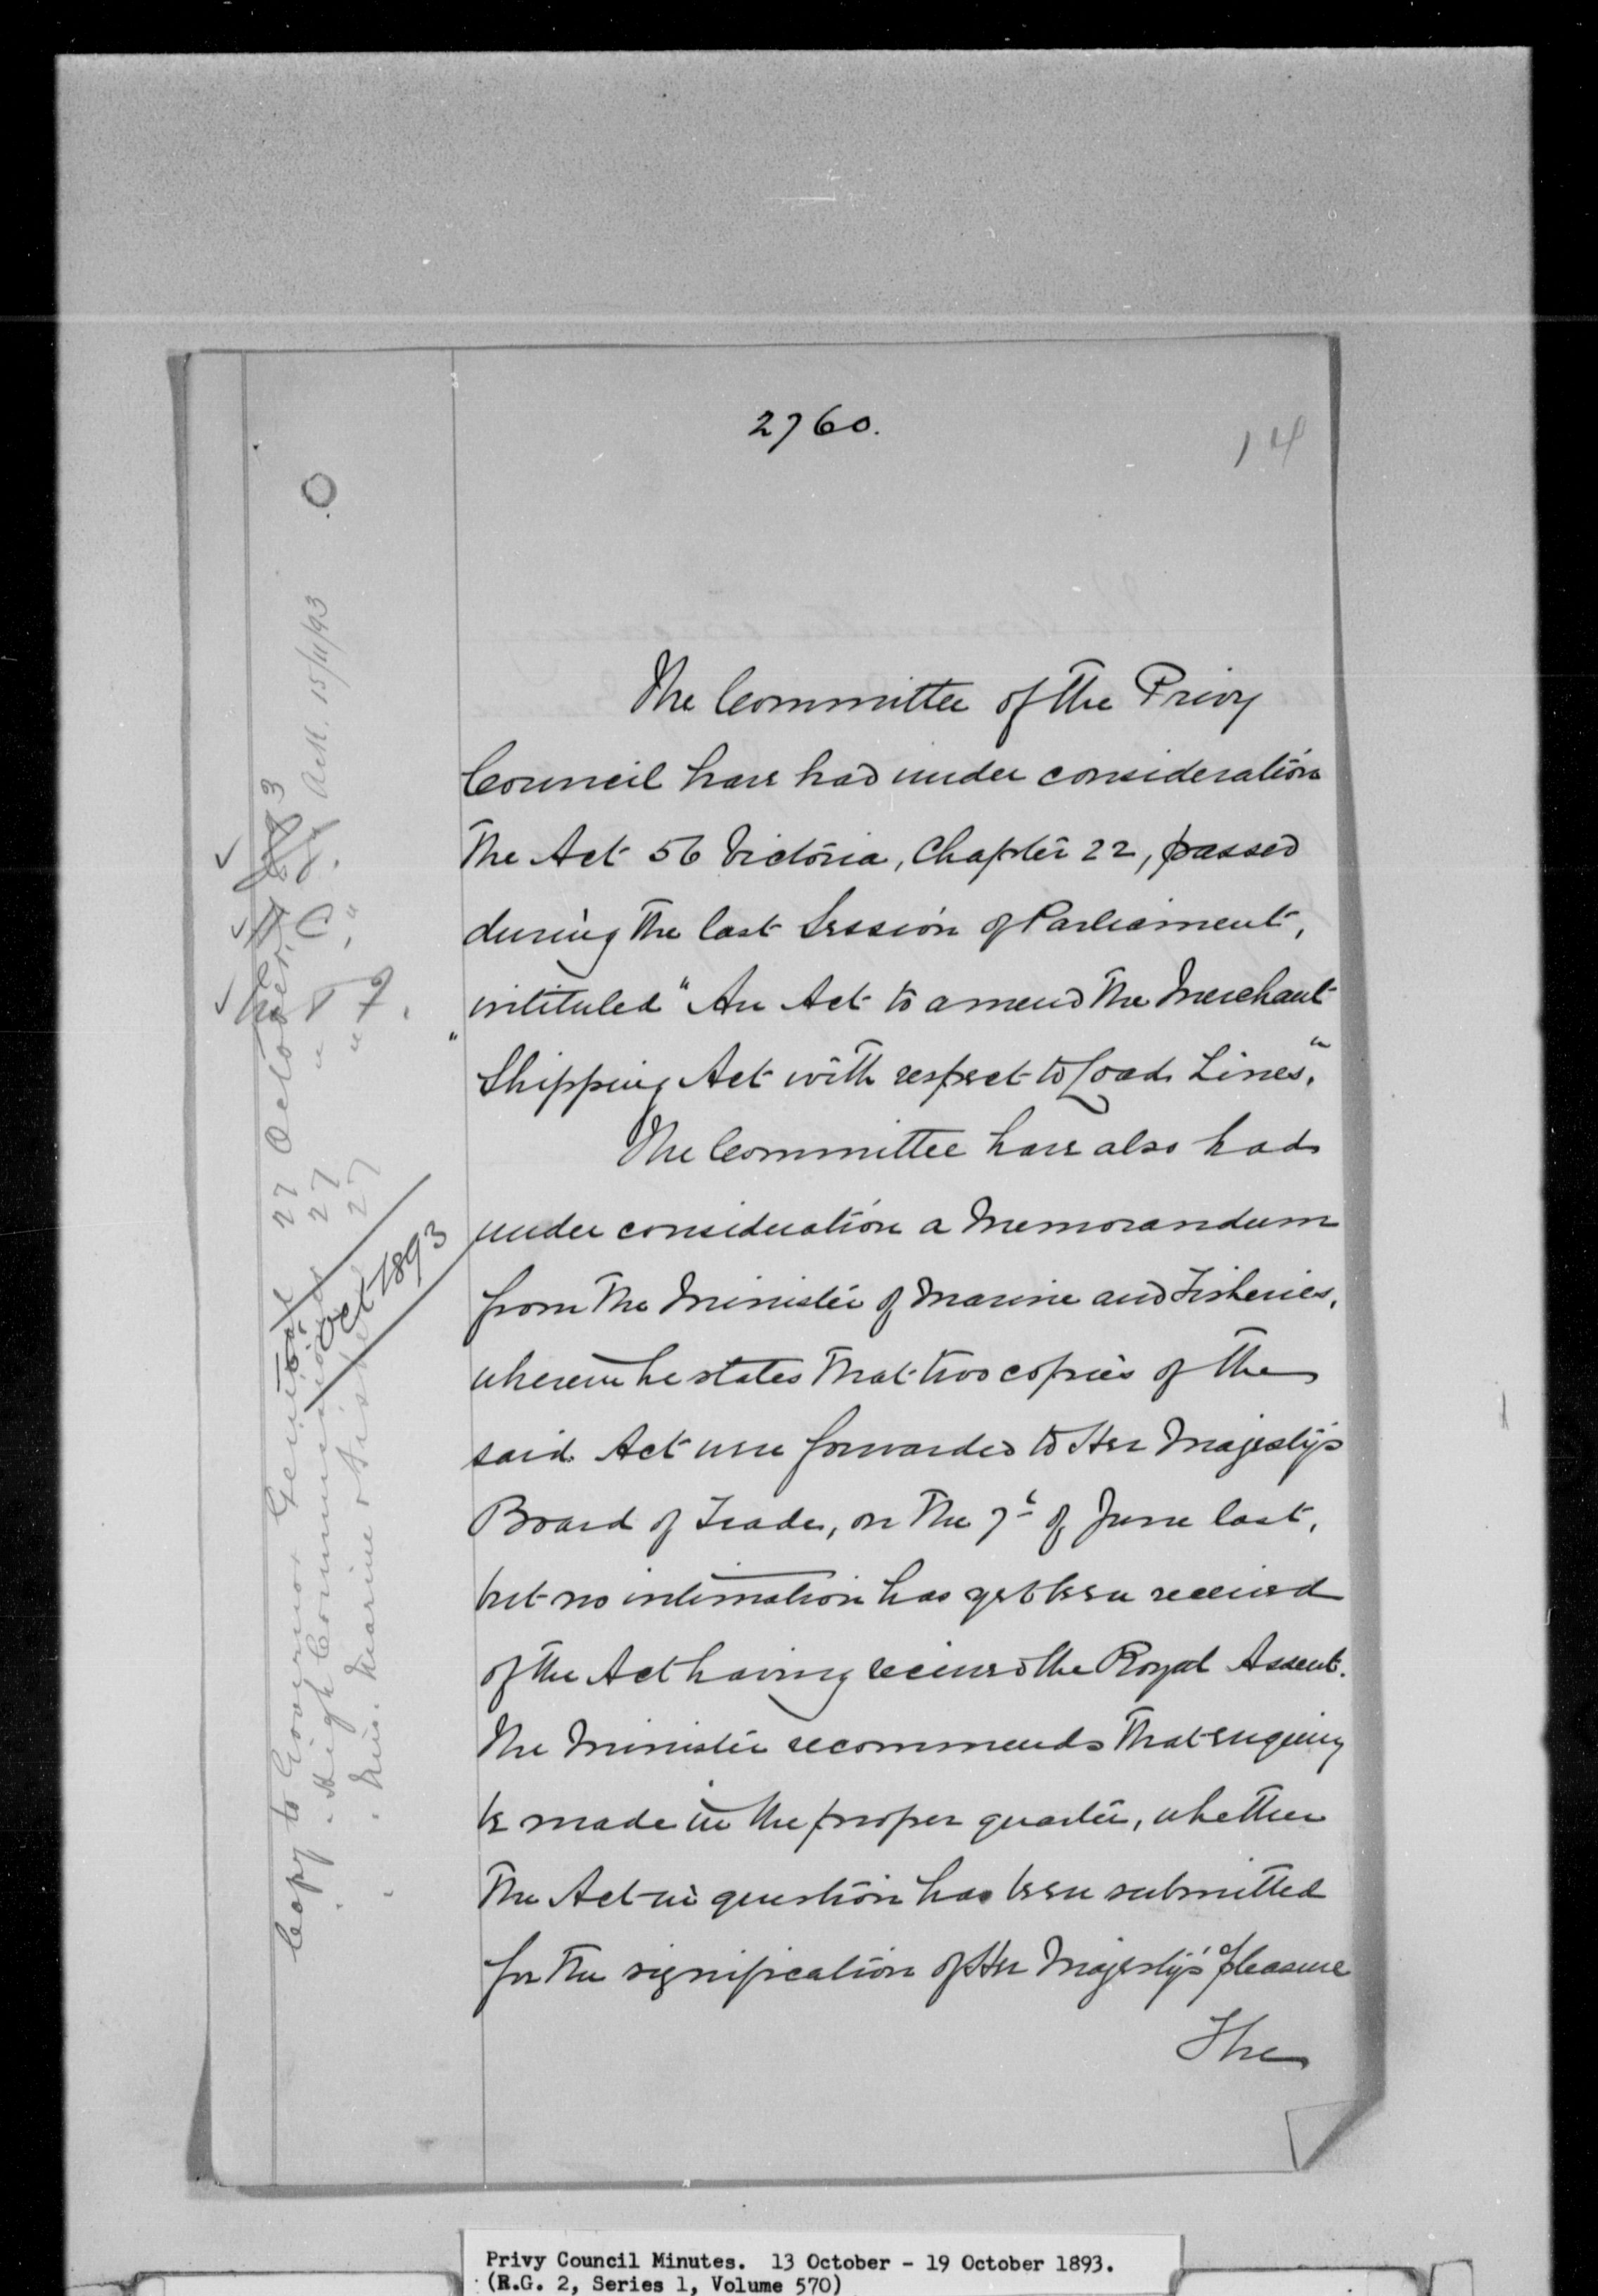 2760.
14
The Committee of the Privy
Council have had under consideration
the Act 56 Victoria, Chapter 22, passed
during the last Session of Parliament,
intituled "An Act to amend the Merchant
"Shipping Act with respect to Load Lines."
The Committee have also had
under consideration a Memorandum
from the Minister of Marine and Fisheries,
wherein he states that two copies of the
said Act were forwarded to Her Majesty's
Board of Trade, on the 7th of June last,
but no intimation has yet been received
of the Act having received the Royal Assent.
The Minister recommends that enquiry
be made in the proper quarter, whether
the Act in question has been submitted
for the signification of Her Majesty's pleasure
The
Copy to Governor General 27 October
" " High Commissioner 27 " Ack. 15/11/93
" " Min. Marine & Fisheries 27 " "
Oct 1893
Privy Council Minutes. 13 October - 19 October 1893.
(R.G. 2, Series 1, Volume 570)